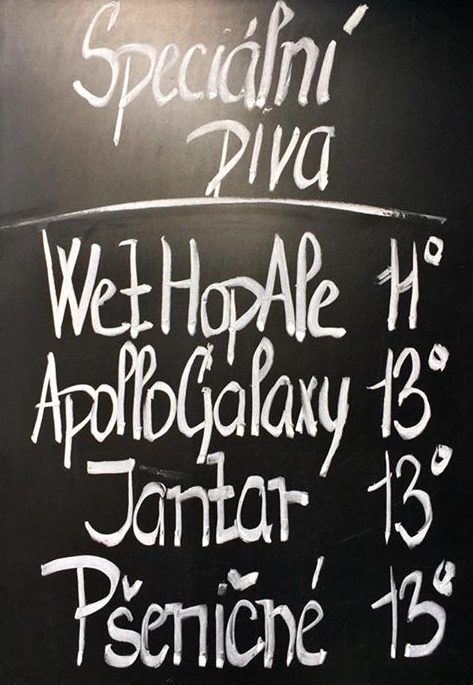 Speciální
piva
Wet Hop Ale 11°
Apollo Galaxy 13°
Jantar 13°
Pšeničné 13°